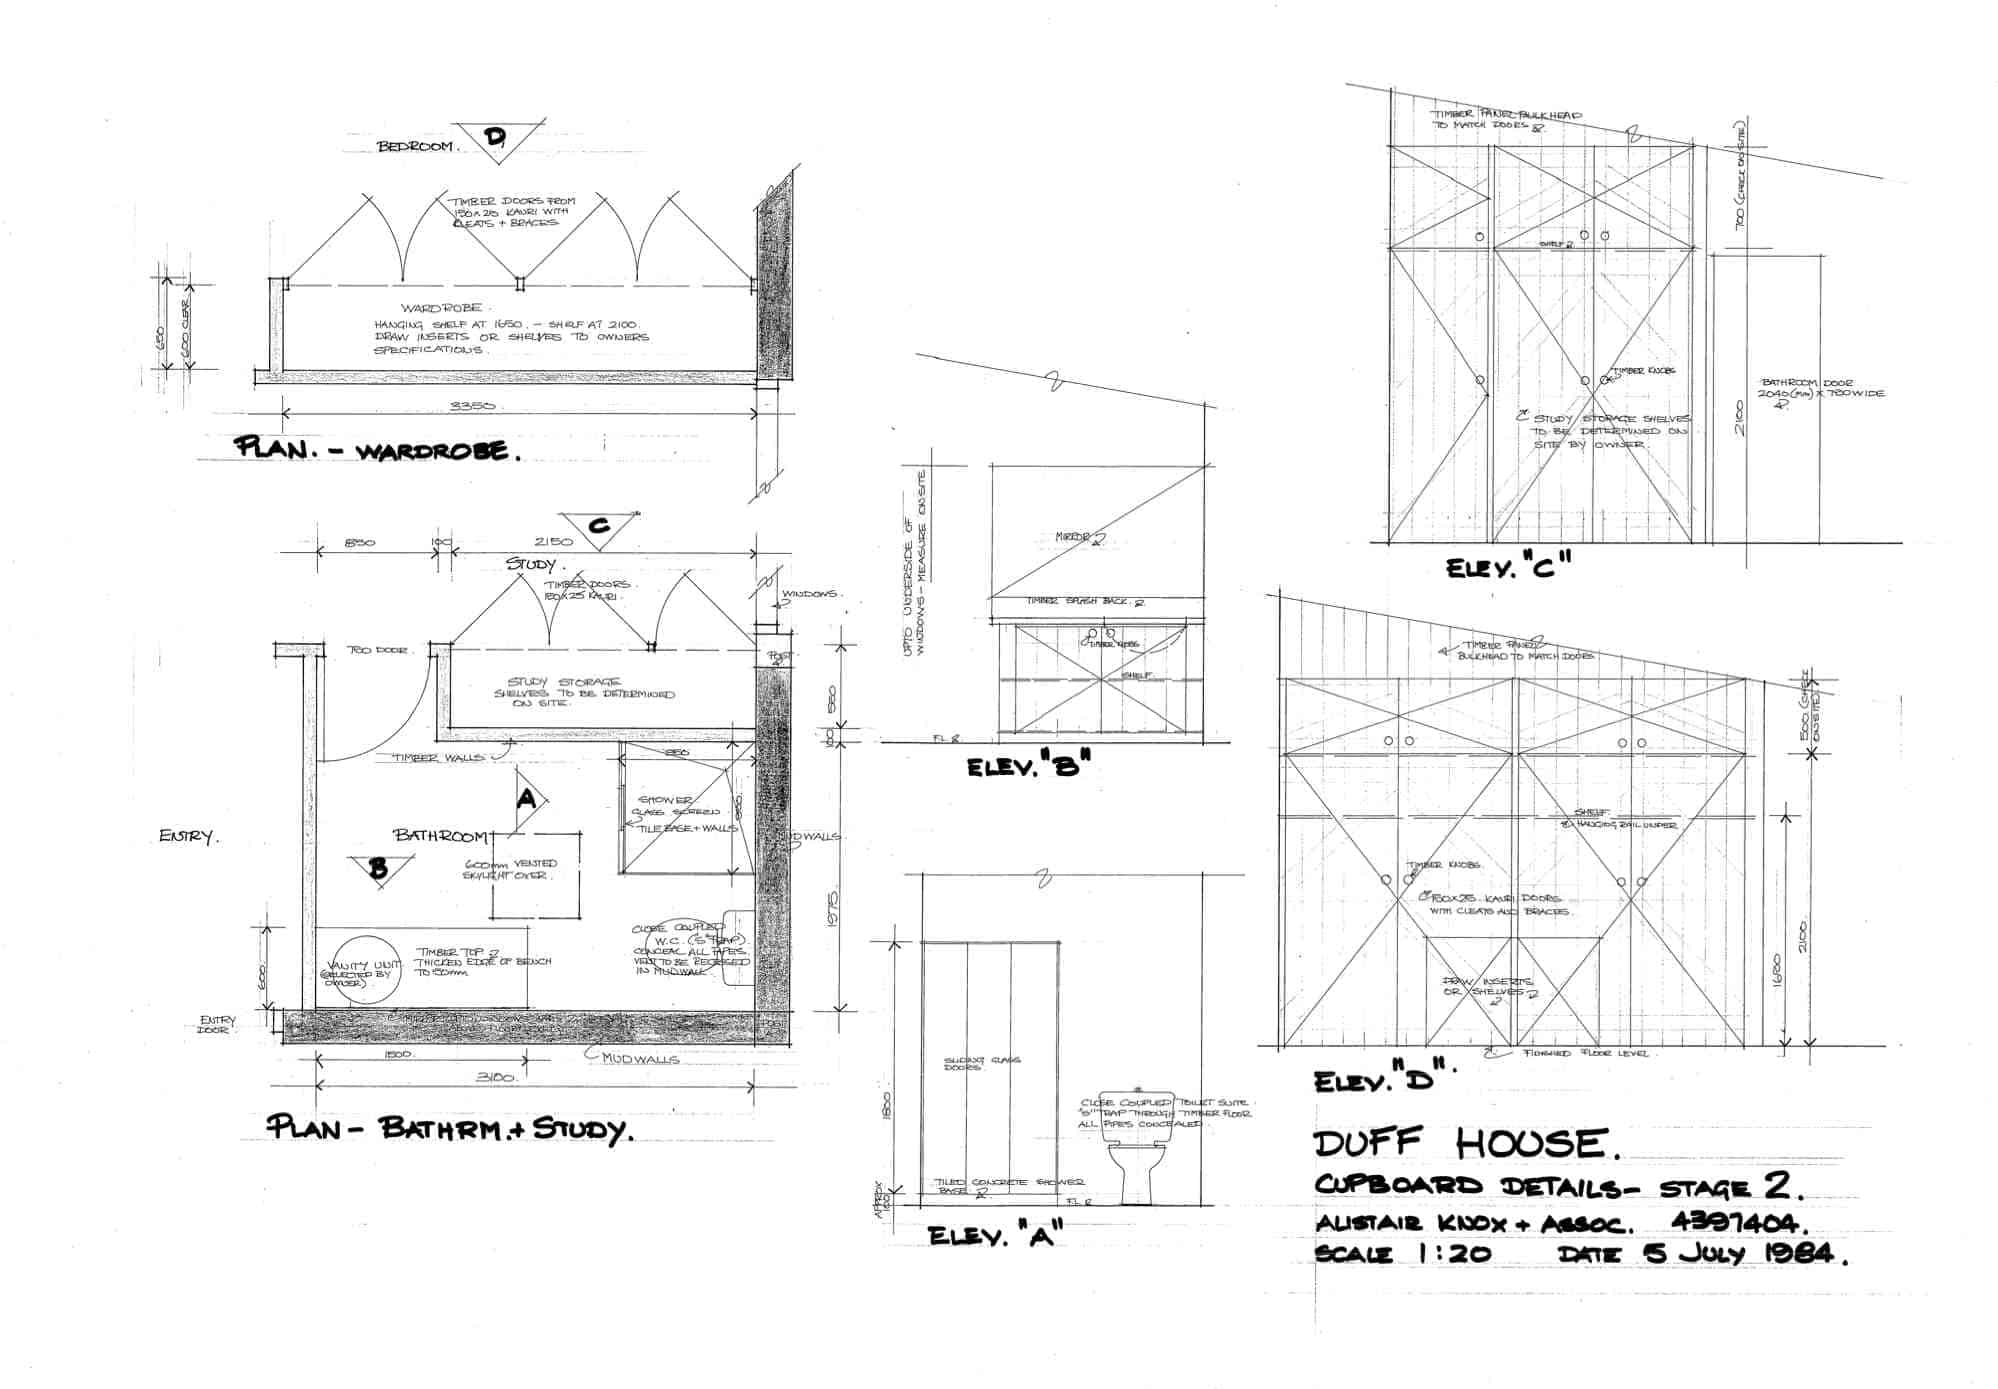 BEDROOM.
D
TIMBER DOORS FROM
150 x 25 KAURI WITH
CLEATS + BRACES
WARDROBE.
HANGING SHELF AT 1650. - SHELF AT 2100.
DRAW INSERTS OR SHELVES TO OWNERS
SPECIFICATIONS.
650
600 CLEAR
3350
PLAN. - WARDROBE.
C
850
100
2150
STUDY.
TIMBER DOORS.
150x25 KAURI.
WINDOWS.
POST
780 DOOR.
STUDY STORAGE
SHELVES TO BE DETERMINED
ON SITE.
TIMBER WALLS
850
SHOWER
GLASS SCREEN
TILE BASE + WALLS
MUDWALLS.
A
ENTRY.
BATHROOM
B
600mm VENTED
SKYLIGHT OVER.
1975
CLOSE COUPLED
W.C. ("S" TRAP).
CONCEAL ALL PIPES.
VENT TO BE RECESSED
IN MUDWALL
VANITY UNIT
(SELECTED BY
OWNER)
TIMBER TOP
THICKEN EDGE OF BENCH
TO 50mm
600
ENTRY
DOOR
1500
MUDWALLS
3100.
PLAN - BATHRM. + STUDY.
UPTO UNDERSIDE OF
WINDOWS - MEASURE ON SITE
MIRROR
TIMBER SPLASH BACK.
TIMBER KNOBS
SHELF.
FL
ELEV. "B"
1800
APPROX
100
SLIDING GLASS
DOORS.
TILED CONCRETE SHOWER
BASE.
CLOSE COUPLED TOILET SUITE.
"S" TRAP THROUGH TIMBER FLOOR
ALL PIPES CONCEALED
FL
ELEV. "A"
TIMBER PANEL BULKHEAD
TO MATCH DOORS
700 (CHECK ON SITE)
SHELF
TIMBER KNOBS
STUDY STORAGE SHELVES
TO BE DETERMINED ON
SITE BY OWNER.
2100
BATHROOM DOOR
2040 (MIN) x 780 WIDE
ELEV. "C"
TIMBER PANEL
BULKHEAD TO MATCH DOORS
500 (CHECK
ON SITE)
SHELF.
HANGING RAIL UNDER
TIMBER KNOBS.
150x25 KAURI DOORS
WITH CLEATS AND BRACES.
DRAW INSERTS
OR SHELVES
1650
2100
FINISHED FLOOR LEVEL.
ELEV. "D".
DUFF HOUSE.
CUPBOARD DETAILS - STAGE 2.
ALISTAIR KNOX + ASSOC. 4397404.
SCALE 1:20 DATE 5 JULY 1984.